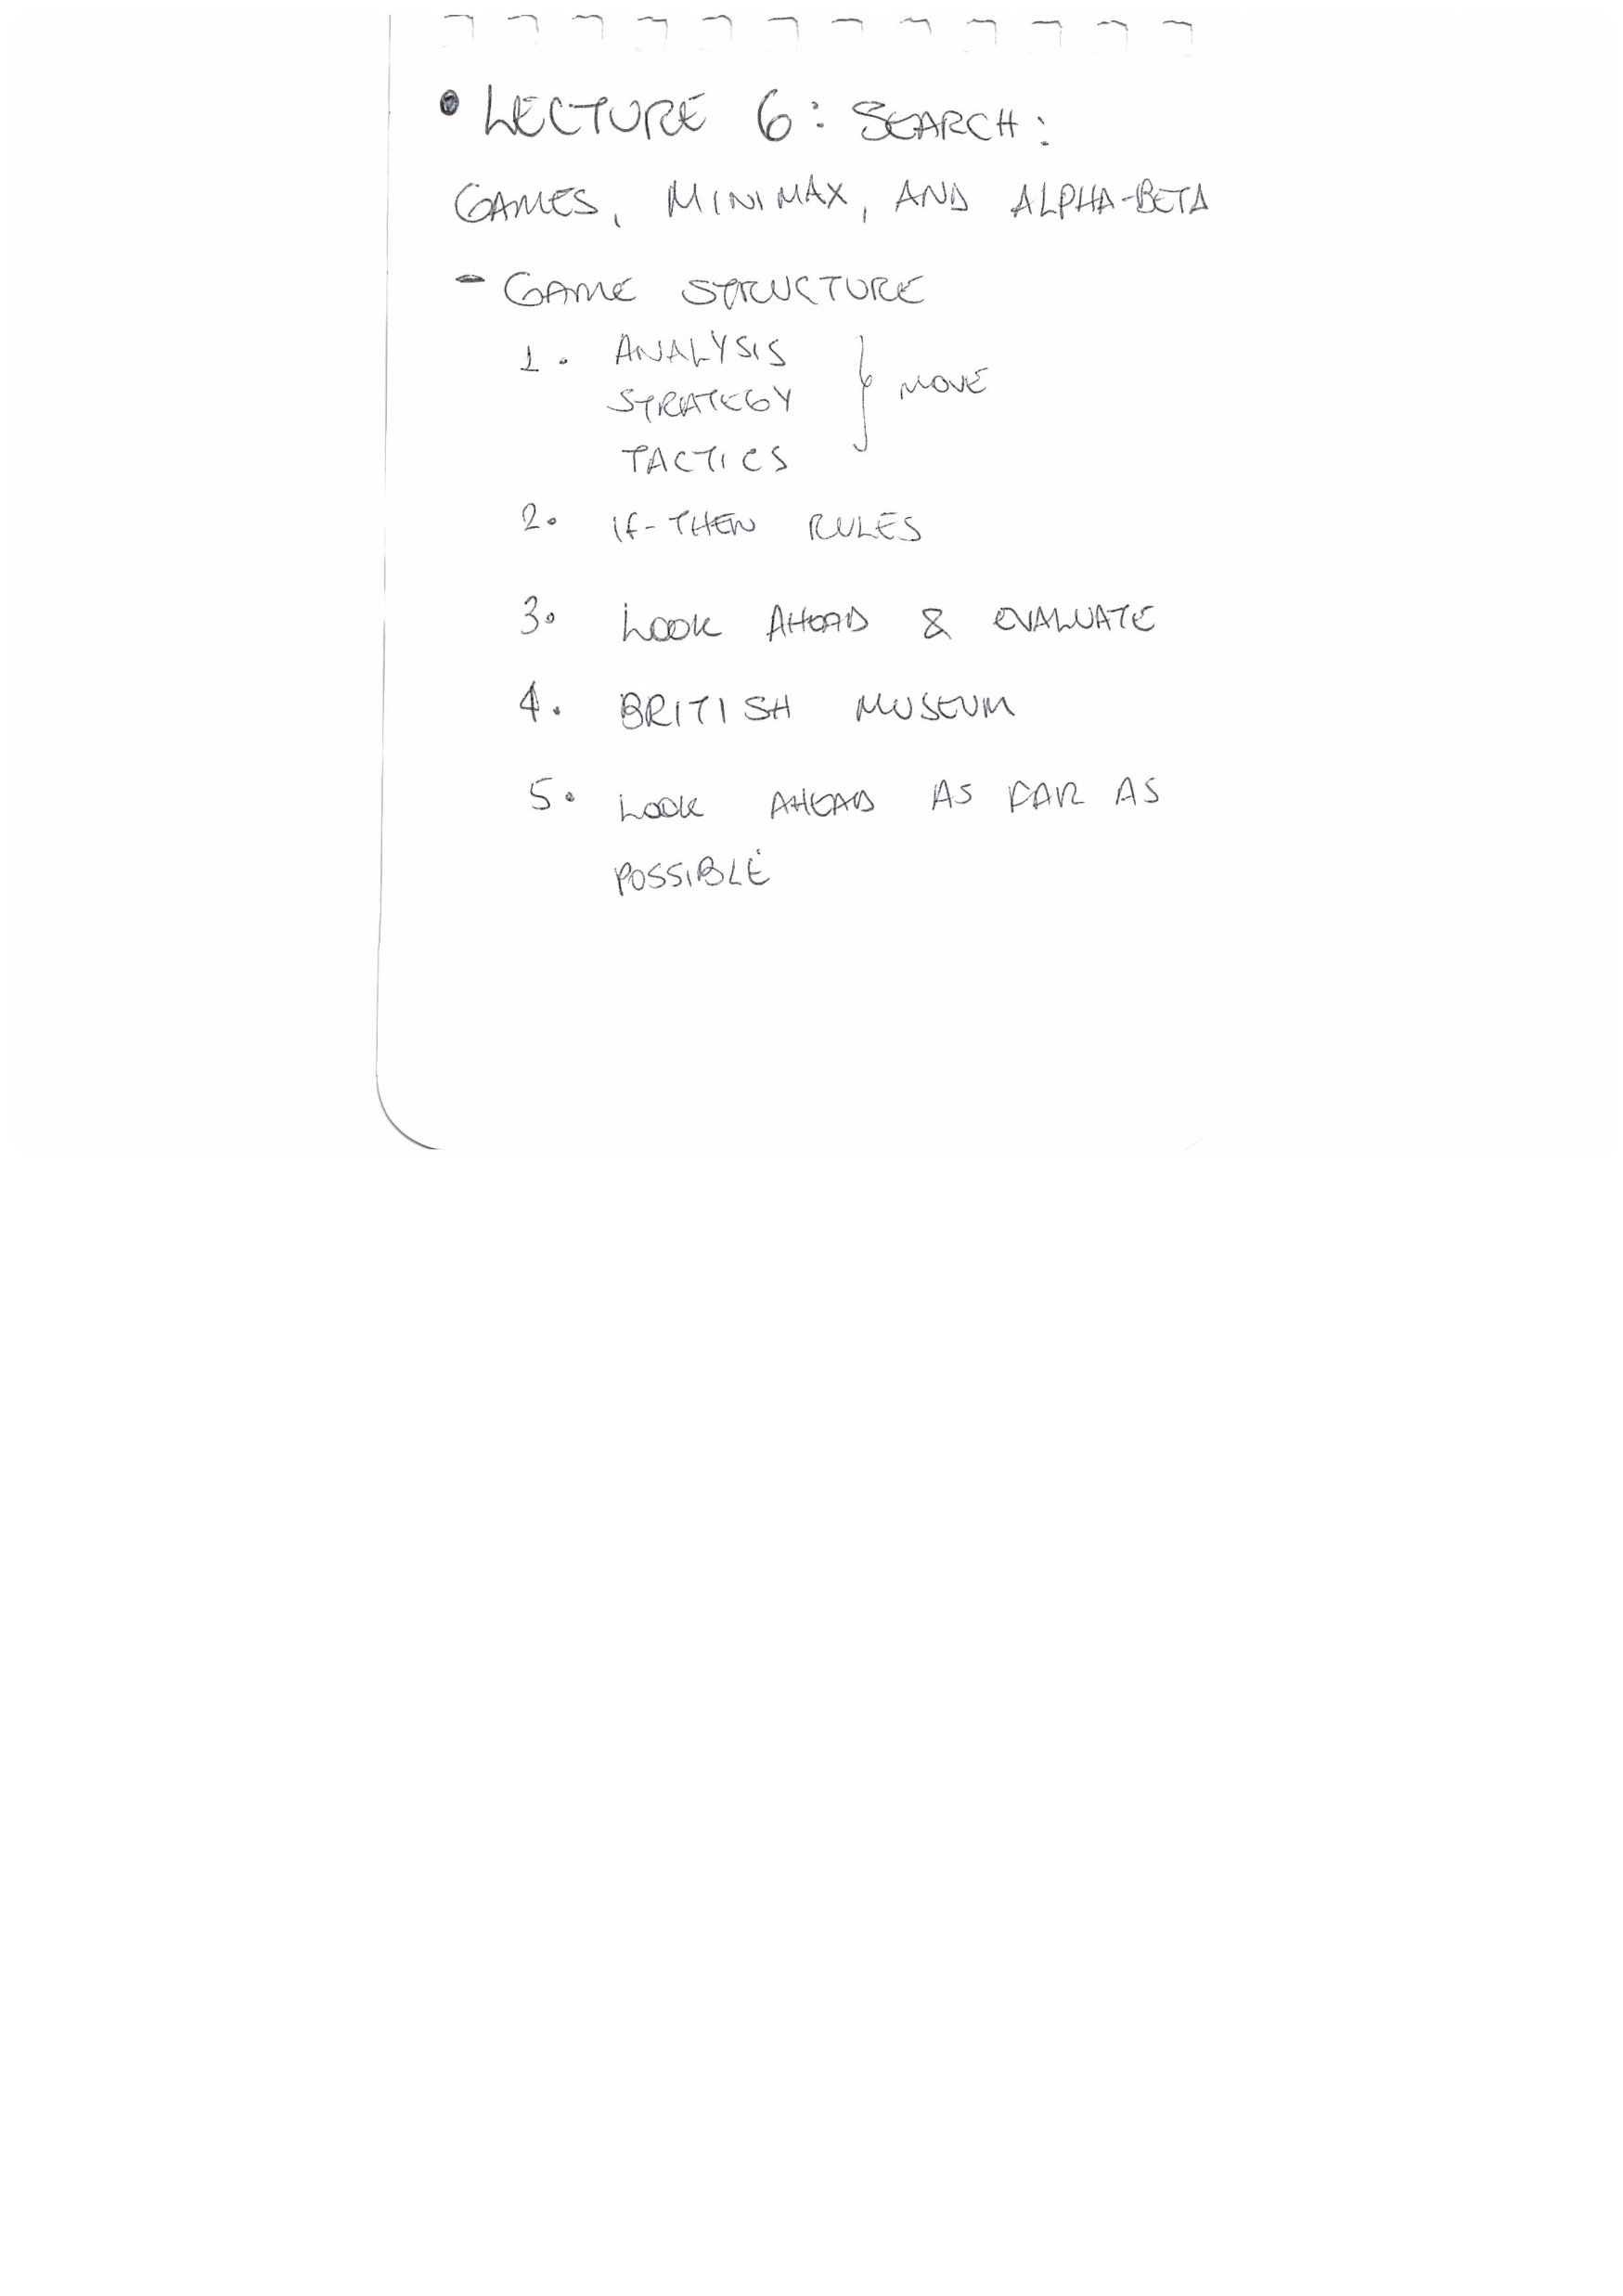 • LECTURE 6: SEARCH:
GAMES, MINIMAX, AND ALPHA-BETA
- GAME STRUCTURE
1. ANALYSIS
STRATEGY } MOVE
TACTICS
2. IF-THEN RULES
3. LOOK AHEAD & EVALUATE
4. BRITISH MUSEUM
5. LOOK AHEAD AS FAR AS
POSSIBLE